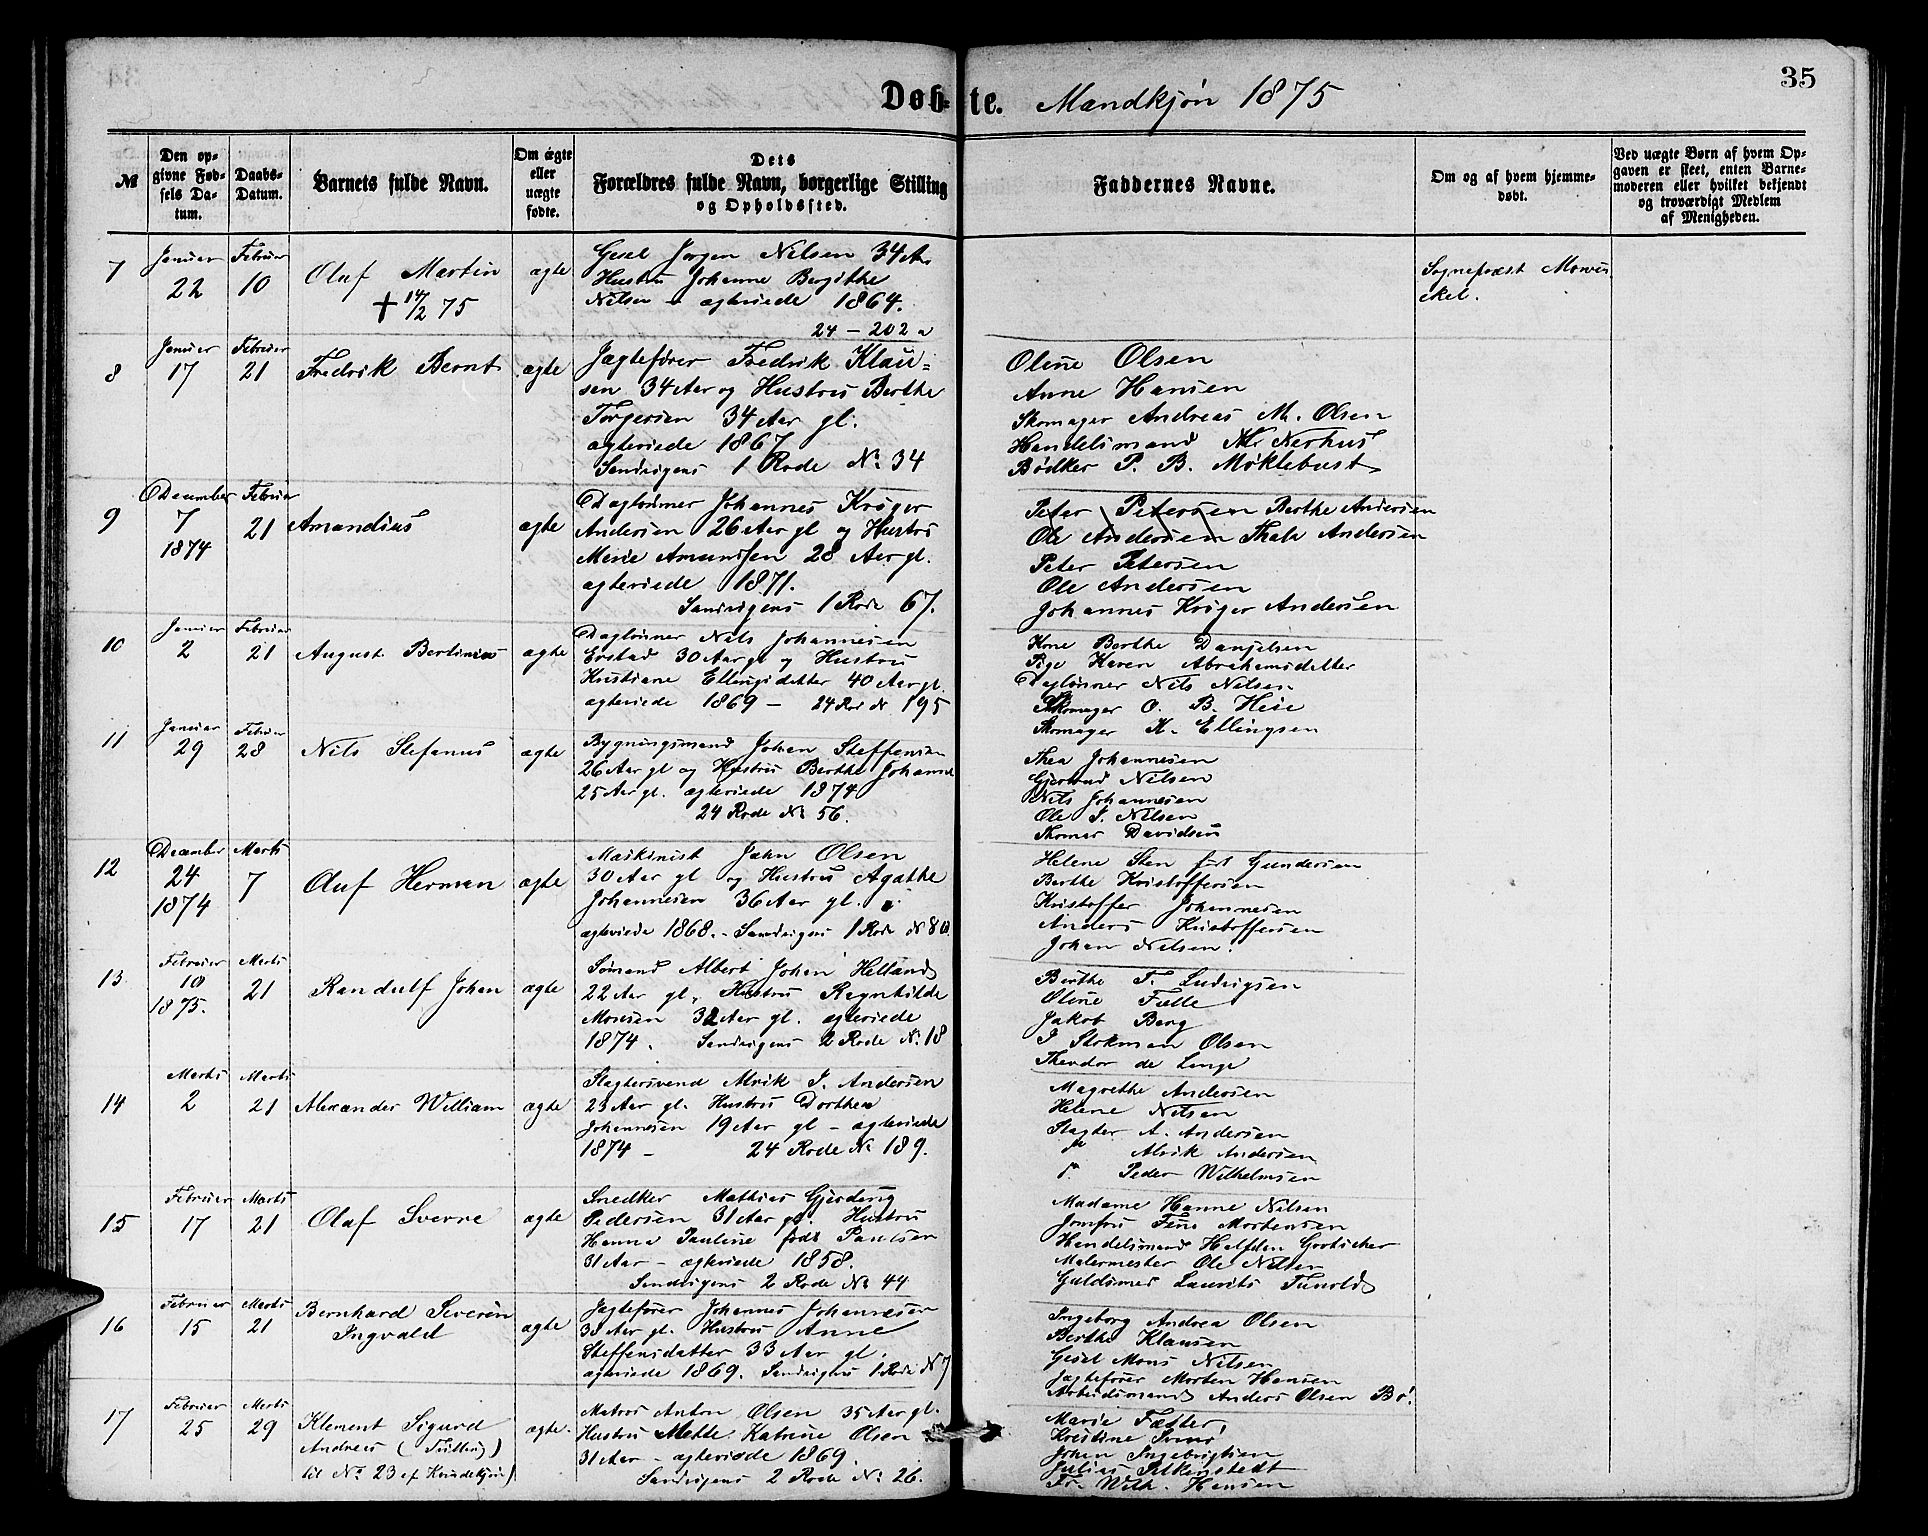 Døbte. Mandkjøn 1875
35
№
Den op-
givne Fød-
sels Da-
tum.
Daabs-
Datum.
Barnets fulde Navn.
Om ægte
eller
uægte
fødte.
Dets
Forældres fulde Navn, borgerlige Stilling
og Opholdssted.
Faddernes Navne.
Om og af hvem hjemme-
døbt.
Ved uægte Børn af hvem Op-
gaven er skeet, enten Barne-
moderen eller hvilket bekjendt
og troværdigt Medlem
af Menigheden.
7
Januar
22
Februar
10
Oluf Martin
+ 14/2 75
ægte
Gesel Jørgen Nilsen 34 Aar
Hustru Johanne Bergithe
Nilsen ægteviede 1864.
24 - 202 a
Sognepræst Mowin
ckel.
8
Januar
17
Februar
21
Fredrik Bernt
ægte
Jægtefører Fredrik Klau-
sen 34 Aar og Hustru Berthe
Torgersen 34 Aar gl.
ægteviede 1867
Sandvigens 1 Rode № 34
Oline Olsen
Anne Hansen
Skomager Andreas M. Olsen
Handelsmand Nerhus
Bødker P. B. Møklebust
9
December
7
1874
Februar
21
Amandius
ægte
Daglønner Johannes Krøger
Andersen 26 Aar gl og Hustru
Marie Amundsen 28 Aar gl.
ægteviede 1871.
Sandvigens 1 Rode 67.
Peter Petersen Berthe Andersen
Ole Andersen Thale Andersen
Peter Petersen
Ole Andersen
Johannes Krøger Andersen
10
Januar
2
Februar
21
August Bertinius
ægte
Daglønner Nils Johannesen
Erstad 30 Aar gl og Hustru
Kristiane Ellingsdatter 40 Aar gl.
ægteviede 1869 - 24 Rode № 195
Kone Berthe Danjelsen
Pige Karen Abrahamsdatter
Daglønner Nils Nilsen
Skomager O. B. Heie
Skomager K. Ellingsen
11
Januar
29
Februar
28
Nils Stefanus
ægte
Bygningsmand Johan Steffensen
26 Aar gl og Hustru Berthe Johanne
25 Aar gl. ægteviede 1874
24 Rode № 56.
Thea Johannesen
Gjertrud Nilsen
Nils Johannesen
Ole J. Nilsen
Thomas Davidsen
12
December
24
1874
Marts
7
Oluf Herman
ægte
Maskinist John Olsen
30 Aar gl og Hustru Agathe
Johannesen 36 Aar gl.
ægteviede 1868. - Sandvigens 1 Rode № 80
Helene Sten født Gundersen
Berthe Kristoffersen
Kristoffer Johannesen
Anders Kristoffersen
Johan Nilsen.
13
Februar
10
1875.
Marts
21
Randulf Johan
ægte
Sømand Albert Johan Helland
22 Aar gl, Hustru Ragnhilde
Monsen 32 Aar gl. ægteviede
1874. Sandvigens 2 Rode № 18
Berthe T. Ludvigsen
Oline Fætte
Jakob Berg
J Stokman Olsen
Theodor de Lange
14
Marts
2
Marts
21
Alexander William
ægte
Slagtersvend Alrik J. Andersen
23 Aar gl. Hustru Dorthea
Johannesen 19 Aar gl - ægteviede
1874 - 24 Rode № 189.
Magrethe Andersen
Helene Nilsen
Slagter A. Andersen
" Alrik Andersen
" Peder Wilhelmsen
15
Februar
17
Marts
21
Olaf Sverre
ægte
Snedker Mathias Gjerding
Pedersen 31 Aar gl. Hustru
Hanna Pauline født Paulsen
31 Aar - ægteviede 1858.
Sandvigens 2 Rode № 44
Madame Hanne Nilsen
Jomfru Fine Mortensen
Handelsmand Halfdan
Malermester Ole Nilsen
Guldsmed Laurits Tunold
16
Februar
15
Marts
21
Bernhard Severin
Ingvald
ægte
Jægtefører Johannes Johannesen
Aar gl. Hustru Anne
Steffensdatter 33 Aar gl.
ægteviede 1869. Sandvigens 1 Rode № 7
Ingeborg Andrea Olsen
Berthe Klausen
Gesel Mons Nilsen
Jægtefører Morten Hansen
Arbeidsmand Anders Olsen Bø!
17
Februar
25
Marts
29
Klement Sigurd
Andreas (Tvilling)
til № 23 af Kvindekjøn)
ægte.
Matros Anton Olsen 35 Aar gl.
Hustru Mette Katrine Olsen
31 Aar - ægteviede 1869.
Sandvigens 2 Rode № 26.
Marie Fætter,
Kristine
Johan Ingebrigtsen
Julius
Fr. Wilh. Hansen